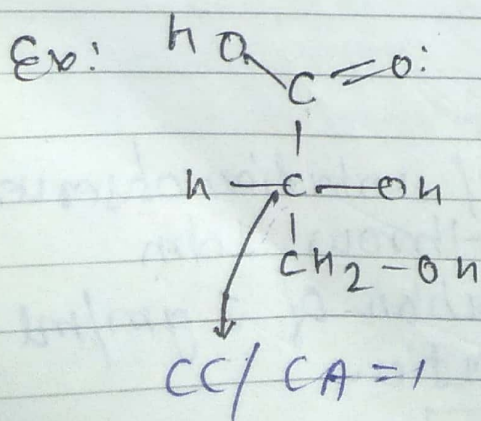 Ex: HO
C=O:
H-C-OH
CH2-OH
CC/CA=1